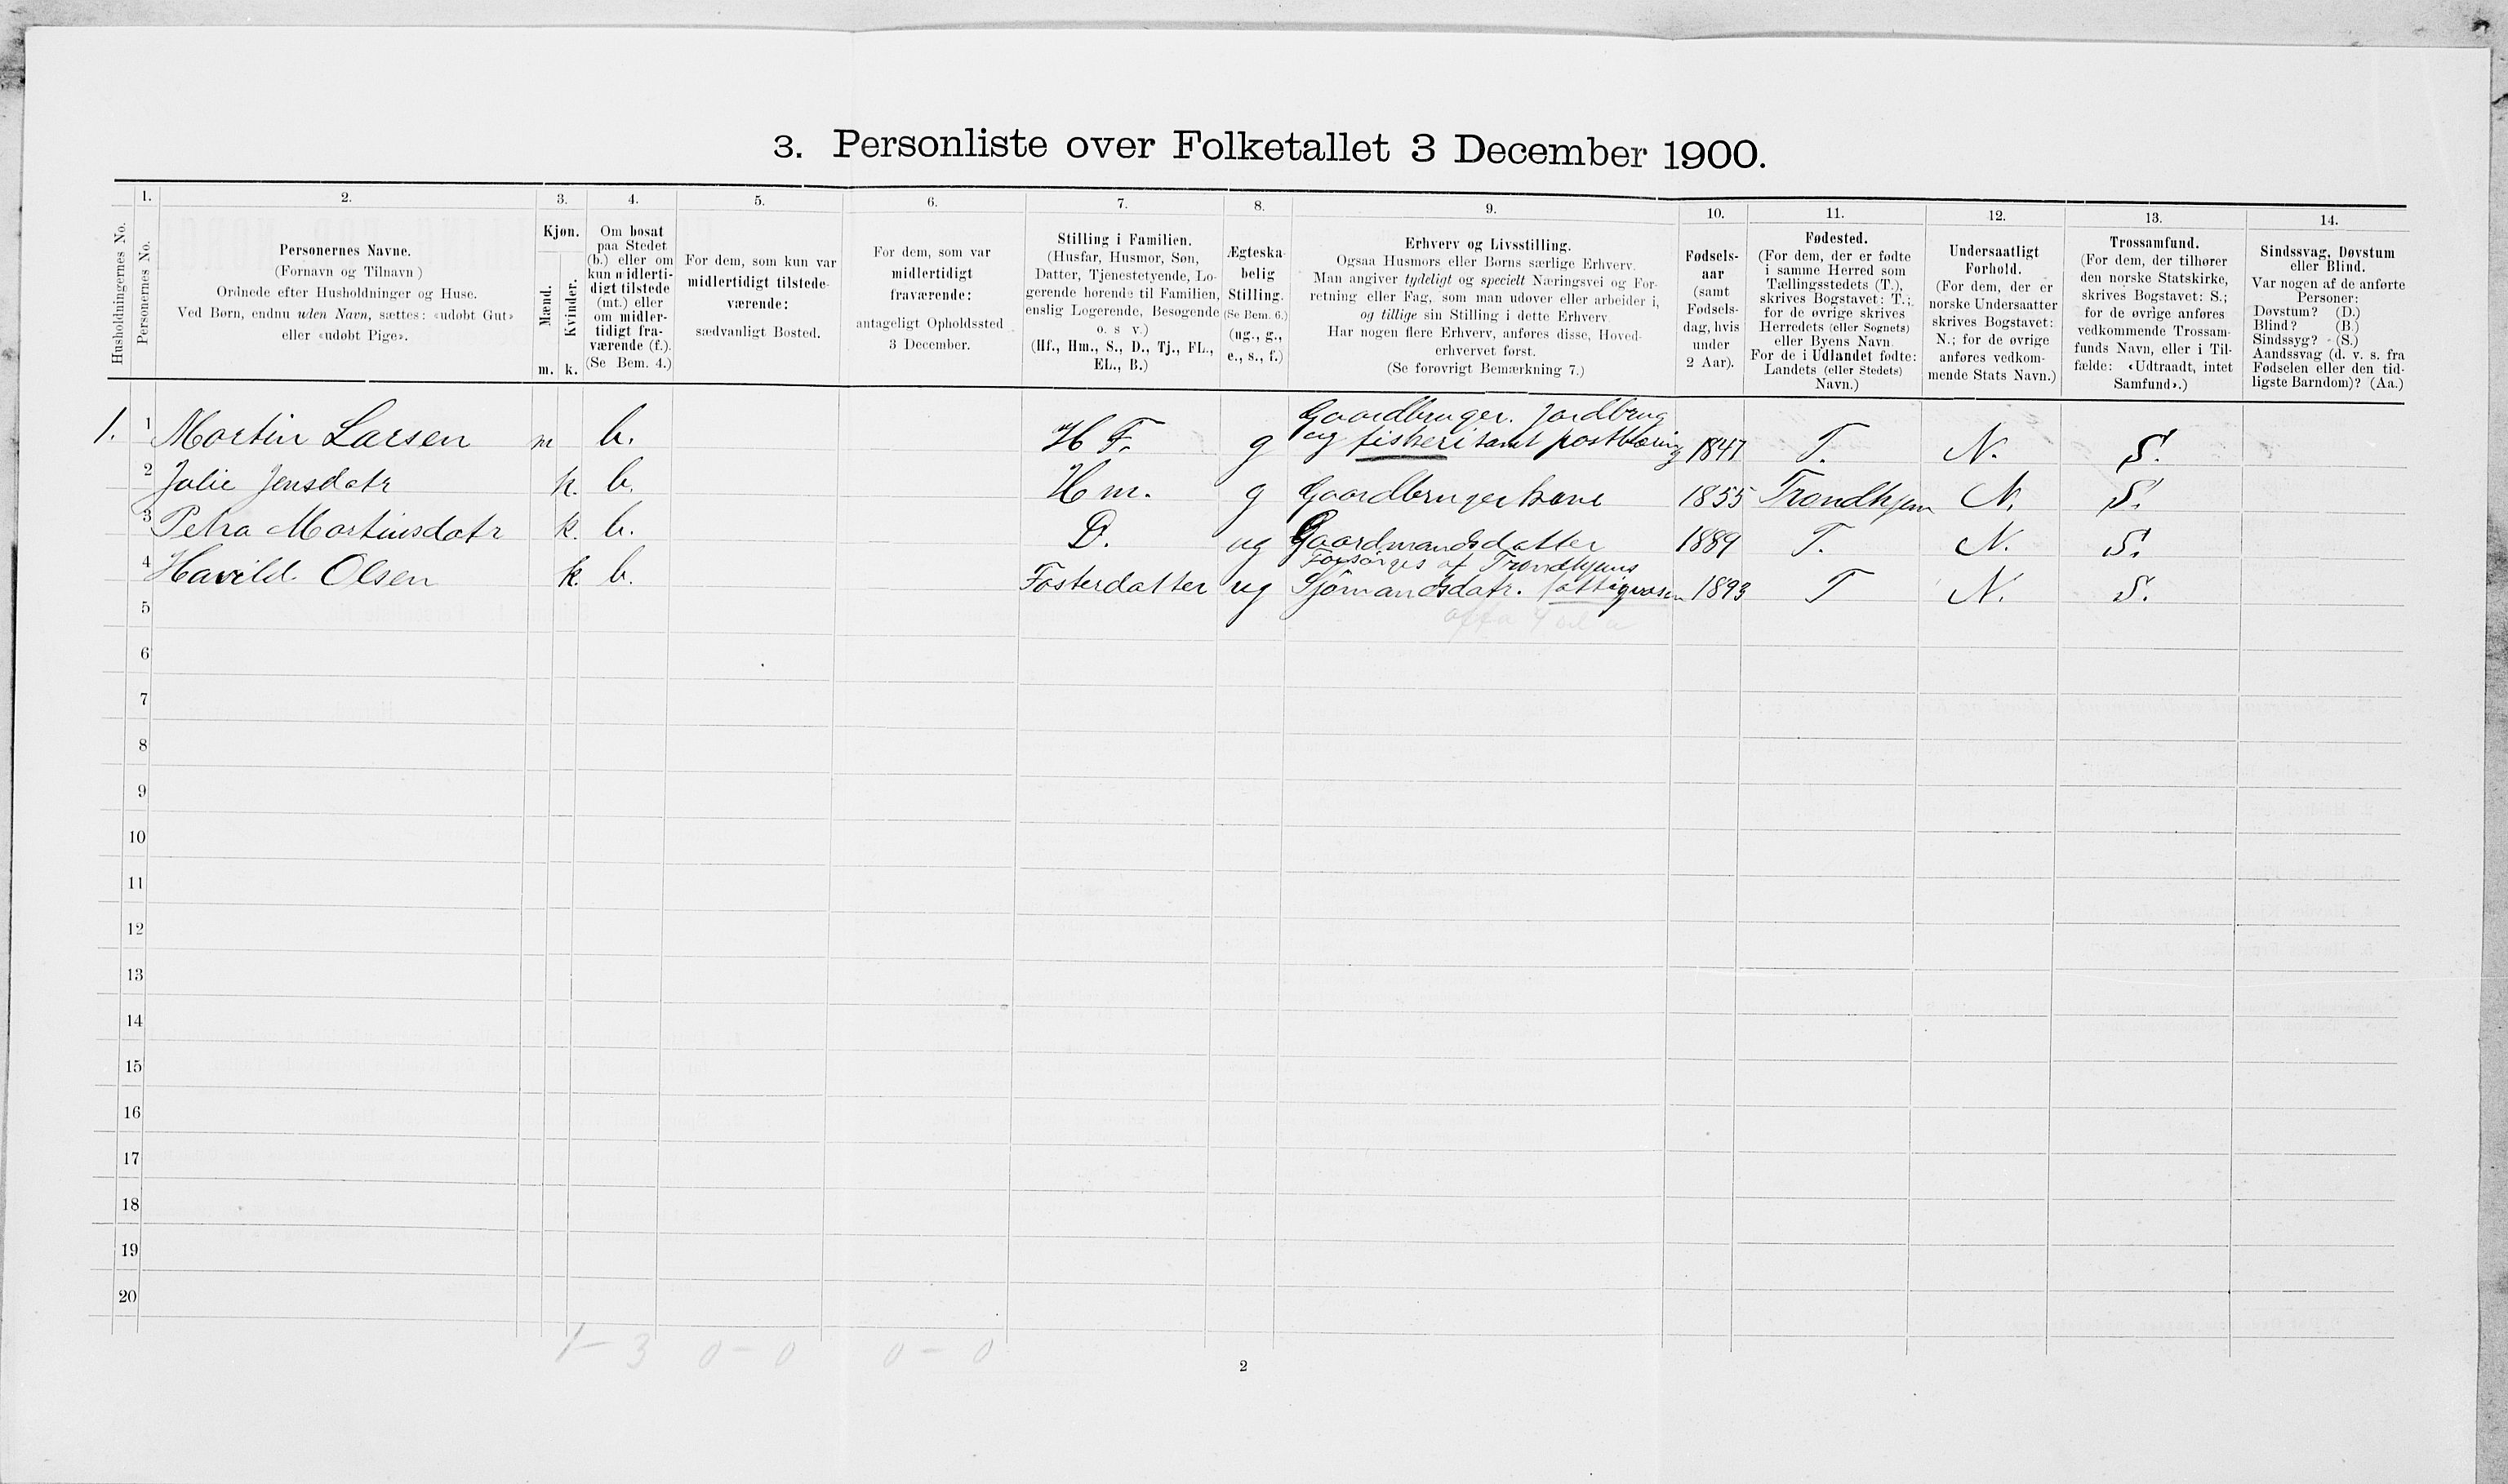 3. Personliste over Folketallet 3 December 1900.
Husholdningernes No.
1.
Personernes No.
2.
Personernes Navne.
(Fornavn og Tilnavn)
Ordnede efter Husholdninger og Huse.
Ved Børn, endnu uden Navn, sættes: «udøbt Gut»
eller «udøbt Pige».
3.
Kjøn.
Mænd.
Kvinder.
m. k.
4.
Om bosat
paa Stedet
(b.) eller om
kun midlerti-
digt tilstede
(mt.) eller
om midler-
tidigt fra-
værende (f.).
(Se Bem. 4.)
5.
For dem, som kun var
midlertidigt tilstede-
værende:
sædvanligt Bosted.
6.
For dem, som var
midlertidigt
fraværende:
antageligt Opholdssted
3 December.
7.
Stilling i Familien.
(Husfar, Husmor, Søn,
Datter, Tjenestetyende, Lo-
gerende hørende til Familien,
enslig Logerende, Besøgende
o. s v.)
(Hf., Hm., S., D., Tj., FL.,
EL., B.)
8.
Ægteska-
belig
Stilling.
(Se Bem. 6.)
(ug., g.,
e., s., f.)
9.
Erhverv og Livsstilling.
Ogsaa Husmors eller Børns særlige Erhverv.
Man angiver tydeligt og specielt Næringsvei og For-
retning eller Fag, som man udøver eller arbeider i,
og tillige sin Stilling i dette Erhverv.
Har nogen flere Erhverv, anføres disse, Hoved-
erhvervet først.
(Se forøvrigt Bemærkning 7.)
10.
Fødsels-
aar
(samt
Fødsels-
dag, hvis
under
2 Aar).
11.
Fødested.
(For dem, der er fødte
i samme Herred som
Tællingsstedets (T.),
skrives Bogstavet: T.;
for de øvrige skrives
Herredets (eller Sognets)
eller Byens Navn.
For de i Udlandet fødte:
Landets (eller Stedets)
Navn.)
12.
Undersaatligt
Forhold.
(For dem, der er
norske Undersaatter
skrives Bogstavet:
N.; for de øvrige
anføres vedkom-
mende Stats Navn.)
13.
Trossamfund.
(For dem, der tilhører
den norske Statskirke,
skrives Bogstavet: S.;
for de øvrige anføres
vedkommende Trossam-
funds Navn, eller i Til-
fælde: «Udtraadt, intet
Samfund».)
14.
Sindssvag, Døvstum
eller Blind.
Var nogen af de anførte
Personer:
Døvstum? (D.)
Blind? (B.)
Sindssyg? (S.)
Aandssvag (d. v. s. fra
Fødselen eller den tid-
ligste Barndom)? (Aa.)
Gaardbruger. Jordbrug
1. 1 Martin Larsen m b. H F. g og fiskeri samt postbæring 1847 T. N. S.
2 Julie Jensdatr k. b. H m. g Gaardbrugerkone 1855 Trondhjem N. S.
3 Petra Martinsdatr k. b. D. ug Gaardmandsdatter 1889 T. N. S.
Forsørges af Trondhjems
4 Havild Olsen k. b. Fosterdatter ug Sjömandsdatr. fattigvæsen 1893 T N. S.
5
6
7
8
9
10
11
12
13
14
15
16
17
18
19
20
1 - 3 0 - 0 0 - 0
2